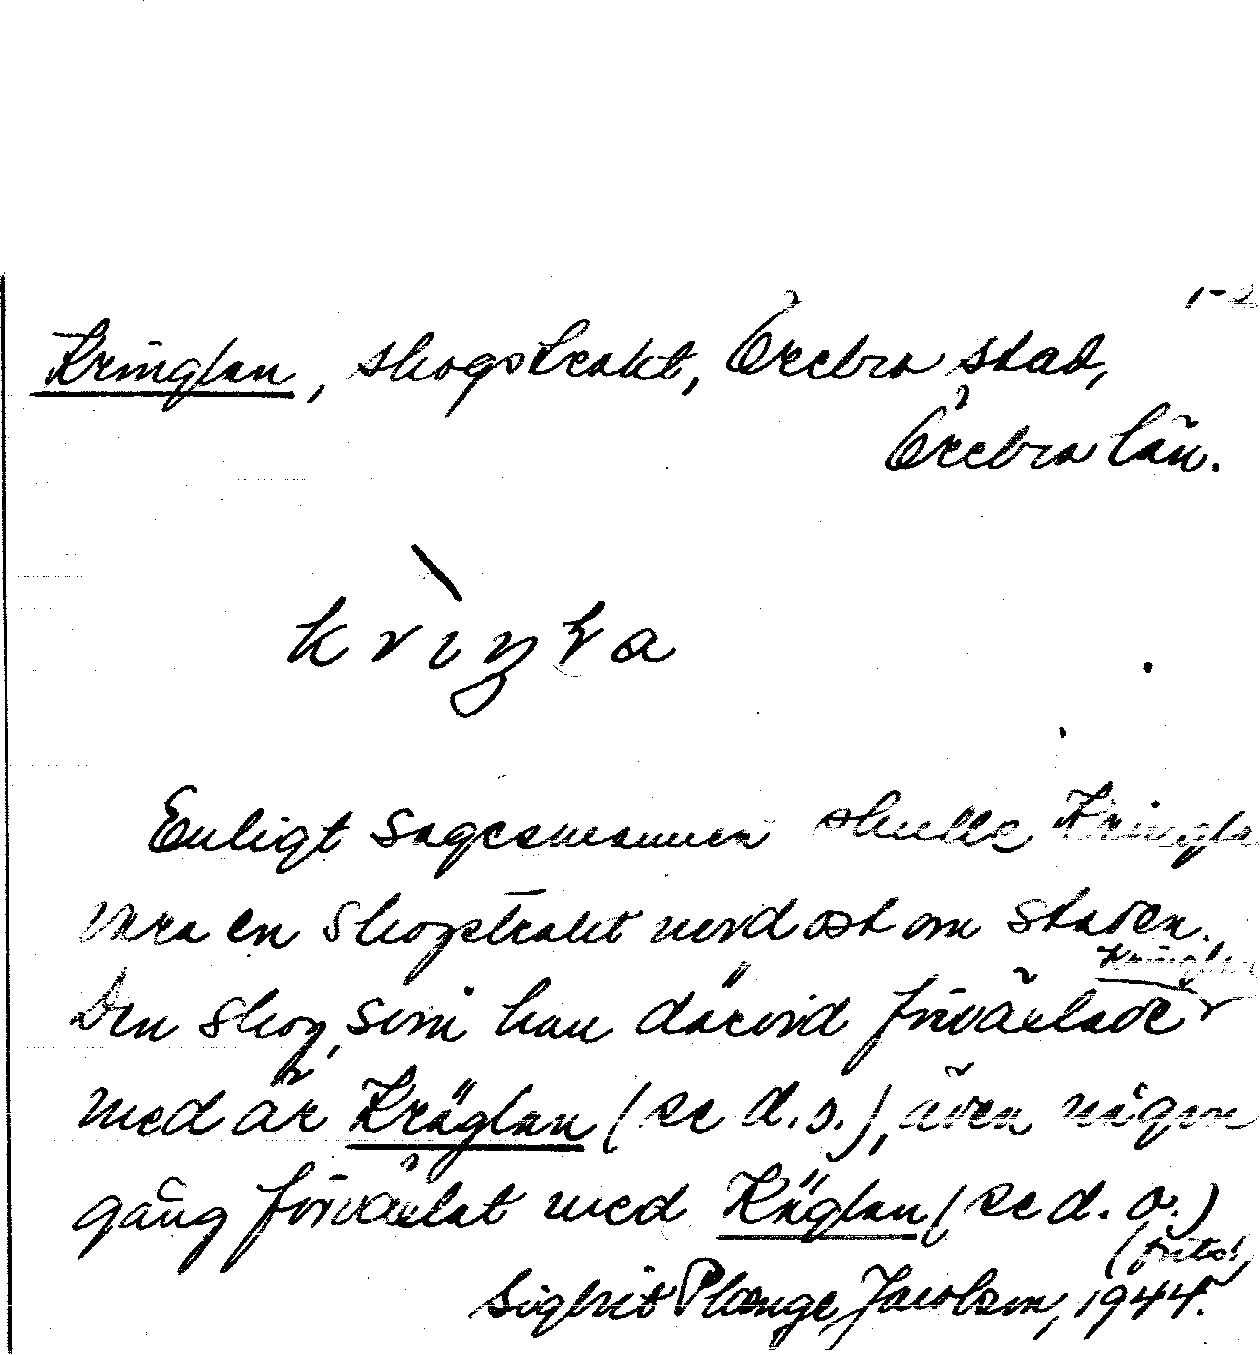 1-2
Kringlan, skogstrakt, Örebro stad,
Örebro län.
Enligt sagesmannen skulle Kringla
vara en skogstrakt nordost om staden.
Kringlan
Den skog, som han därvid förväxlade
med är Kräglan (se d.o.), även någon
gång förväxlat med Käglan (se d.o.)
Sigbrit Plænge Jacobson, 1944.